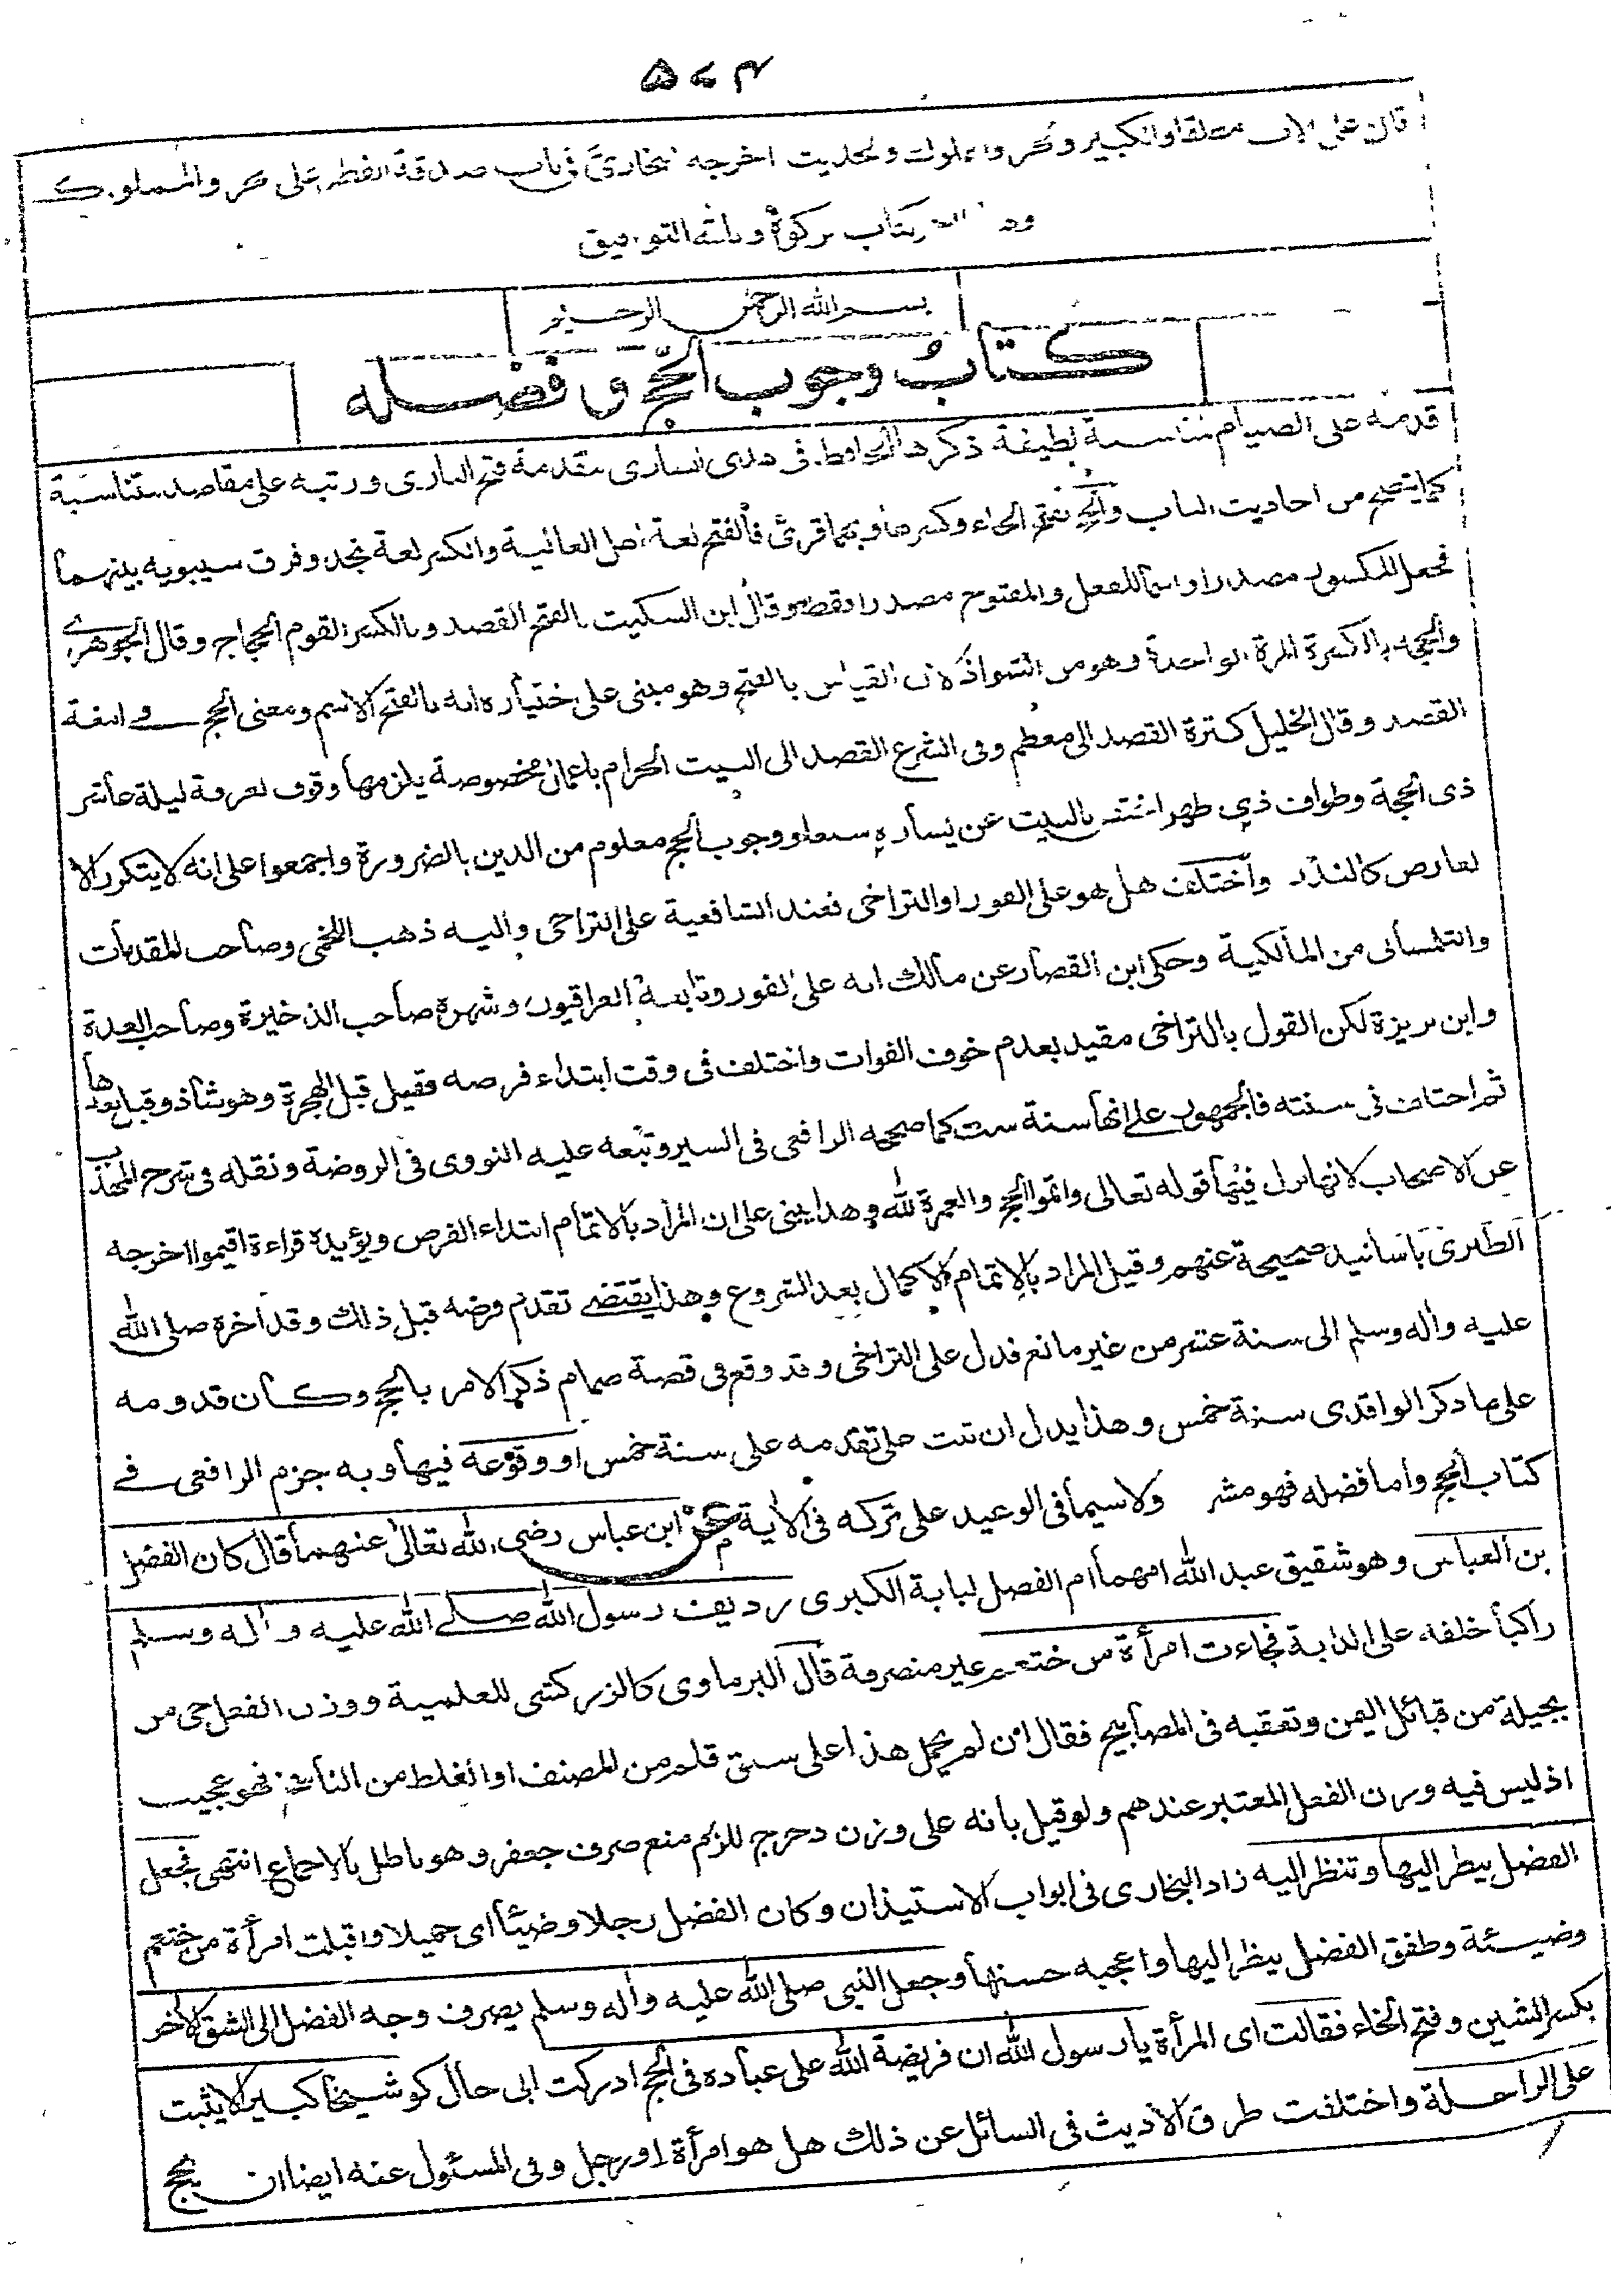 ۵۷۴
والكبير والحديث اخرجه البخاري في باب صدقة الفطر على الحر والمملوك
كتاب الزكوة وبالله التوفيق
بسم الله الرحمن الرحيم
كتاب وجوب الحج وفضله
قدمه على الصيام لمناسبة لطيفة ذكرها الحافظ في هدى السارى مقدمة فتح البارى ورتبه على مقاصد متناسبة
كما يتضح من احاديث الباب والحج بفتح الحاء وكسرها وبهما قرئ فالفتح لغة اهل العالية والكسر لغة نجد وفرق سيبويه بينهما
فجعل المكسور مصدرا واسما للفعل والمفتوح مصدرا فقط وقال ابن السكيت بالفتح القصد وبالكسر القوم الحجاج وقال الجوهرى
والحجة بالكسرة المرة الواحدة وهو من الشواذ لان القياس بالفتح وهو مبنى على اختياره انه بالفتح الاسم ومعنى الحج فى اللغة
القصد وقال الخليل كثرة القصد الى معظم وفى الشرع القصد الى البيت الحرام باعمال مخصوصة يلزمها وقوف بعرفة ليلة عاشر
ذى الحجة وطواف ذى طهر اختص بالبيت عن يساره سبعا ووجوب الحج معلوم من الدين بالضرورة واجمعوا على انه لا يتكرر الا
لعارض كالنذر واختلف هل هو على الفور او التراخى فعند الشافعية على التراخى واليه ذهب اللخمى وصاحب المقدمات
والتلمسانى من المالكية وحكى ابن القصار عن مالك انه على الفور وتابعه العراقيون وشهره صاحب الذخيرة وصاحب العمدة
وابن بريزة لكن القول بالتراخى مقيد بعدم خوف الفوات واختلف فى وقت ابتداء فرضه فقيل قبل الهجرة وهو شاذ وقيل بعدها
ثم اختلف فى سنته فالجمهور على انها سنة ست كما صححه الرافعى فى السير وتبعه عليه النووى فى الروضة ونقله فى شرح المهذب
عن الاصحاب لانها نزل فيها قوله تعالى واتموا الحج والعمرة لله وهذا يبنى على ان المراد بالاتمام ابتداء الفرض ويؤيده قراءة اقيموا اخرجه
الطبرى باسانيد صحيحة عنهم وقيل المراد بالاتمام الاكمال بعد الشروع وهذا يقتضى تقدم فرضه قبل ذلك وقد اخره صلى الله
عليه واله وسلم الى سنة عشر من غير مانع فدل على التراخى وقد وقع فى قصة ضمام ذكر الامر بالحج وكان قدومه
على ما ذكر الواقدى سنة خمس وهذا يدل ان ثبت على تقدمه على سنة خمس او وقوعه فيها وبه جزم الرافعى فى
كتاب الحج واما فضله فهو مشهور ولا سيما فى الوعيد على تركه فى الاية عن ابن عباس رضى الله تعالى عنهما قال كان الفضل
بن العباس وهو شقيق عبد الله امهما ام الفضل لبابة الكبرى رديف رسول الله صلى الله عليه واله وسلم
راكبا خلفه على الدابة فجاءت امرأة من خثعم غير منصرفة قال البرماوى كالزركشى للعلمية ووزن الفعل حى من
بجيلة من قبائل اليمن وتعقبه فى المصابيح فقال ان لم يحمل هذا على سبق قلم من المصنف او الغلط من الناسخ فهو عجيب
اذ ليس فيه وزن الفعل المعتبر عندهم ولو قيل بانه على وزن دحرج للزم منع صرف جعفر وهو باطل بالاجماع انتهى فجعل
الفضل ينظر اليها وتنظر اليه زاد البخارى فى ابواب الاستيذان وكان الفضل رجلا وضيئا اى جميلا واقبلت امرأة من خثعم
وضيئة وطفق الفضل ينظر اليها واعجبه حسنها وجعل النبى صلى الله عليه واله وسلم يصرف وجه الفضل الى الشق الاخر
بكسر الشين وفتح الخاء فقالت اى المرأة يا رسول الله ان فريضة الله على عباده فى الحج ادركت ابى حال كونه شيخا كبيرا لا يثبت
على الراحلة واختلفت طرق الاحاديث فى السائل عن ذلك هل هو امرأة او رجل وفى المسئول عنه ايضا ان يحج